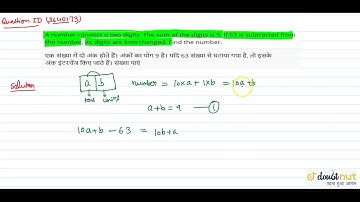 Question ID (3640173)
A number consists o two digits. The sum of the digits is 9. If 63 is subtracted from the number, its digits are interchanged. Find the number.
एक संख्या में दो अंक होते हैं। अंकों का योग 9 है। यदि 63 संख्या से घटाया गया है, तो इसके अंक इंटरचेंज किए जाते हैं। संख्या पाएं
Solution
a b
tens units
number = 10xa + 1xb = 10a+b
a+b = 9 — ①
10a+b - 63 = 10b+a
doubtnut